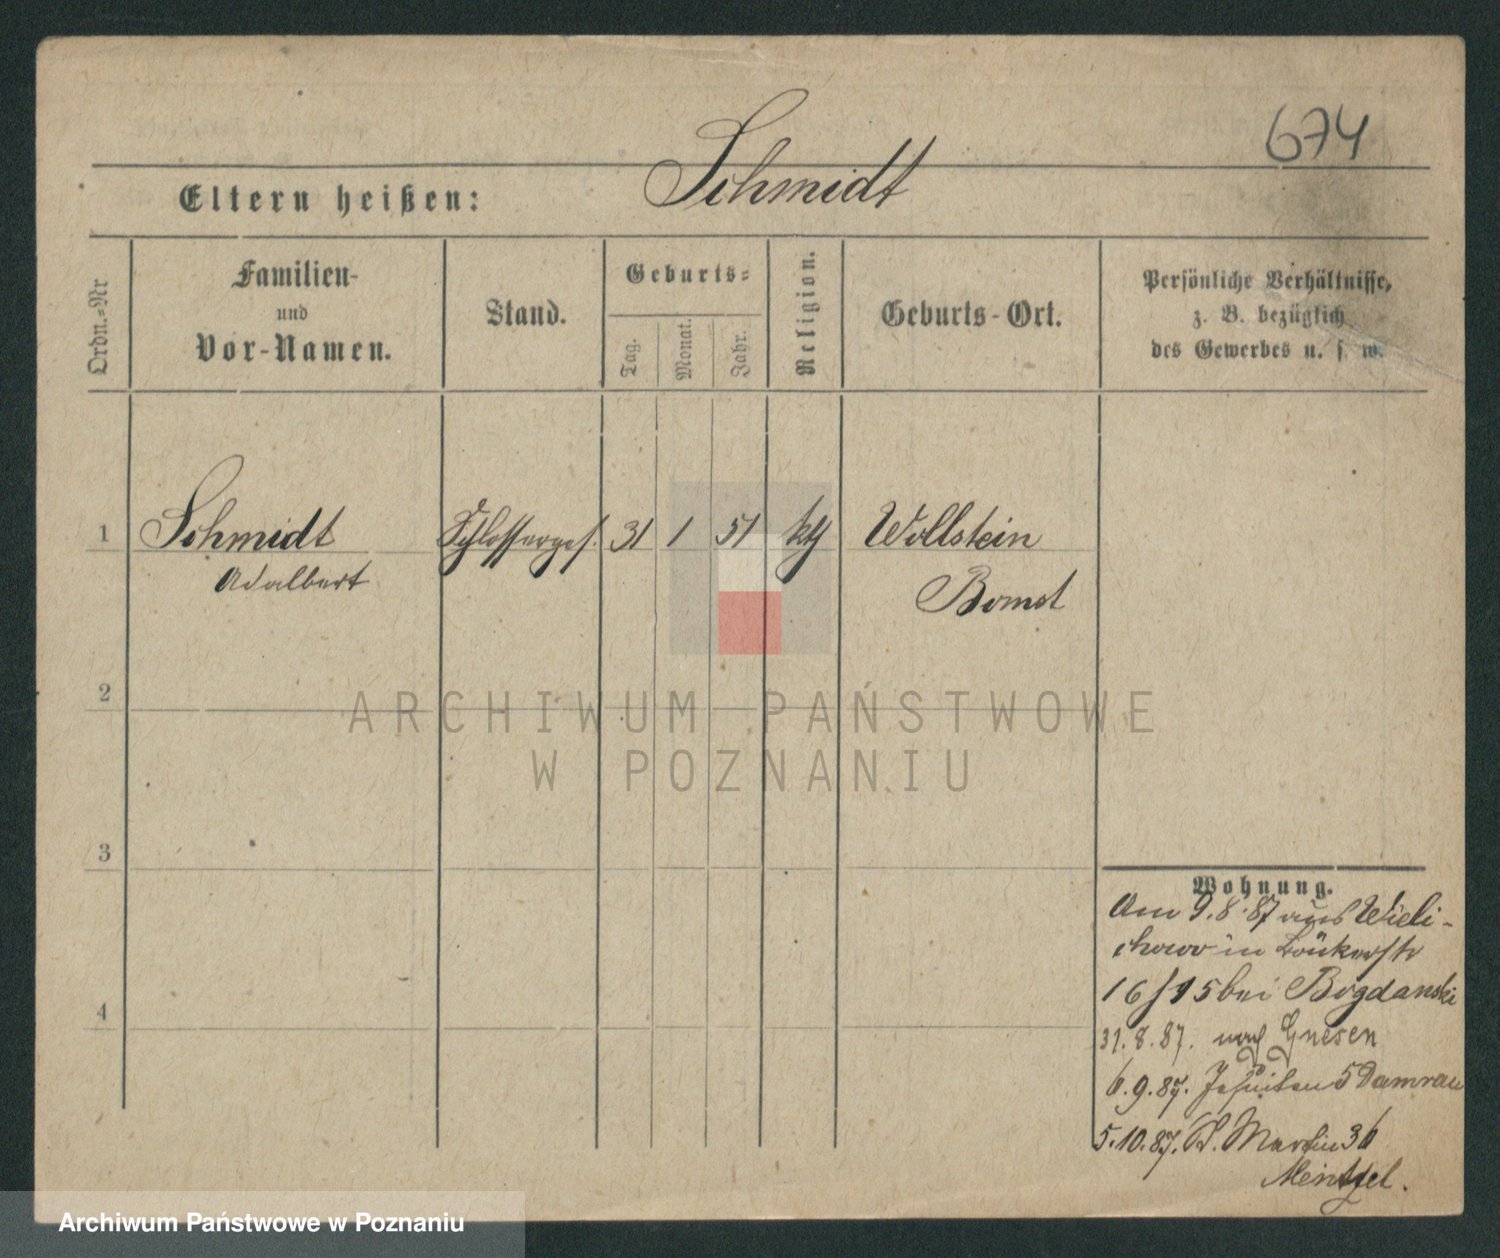 674
Schmidt
Eltern heißen:
Ordn.=Nr
Familien-
und
Vor-Namen.
Stand.
Geburts=
Tag.
Monat.
Jahr.
Religion.
Geburts-Ort.
Persönliche Verhältnisse,
z. B. bezüglich
des Gewerbes u. s. w.
1
Schmidt
Adalbert
Schlosserges.
31
1
51
kth
Wollstein
Bomst
2
ARCHIWUM PAŃSTWOWE
W POZNANIU
3
4
Wohnung.
Am 9.8.87 aus Wieli-
chowo in Bäckerstr
16 15 bei Bogdanski
31.8.87. nach Gnesen
6.9.87. Jesuiten 5 Damrau
5.10.87. St. Martin 36
Mentzel.
Archiwum Państwowe w Poznaniu